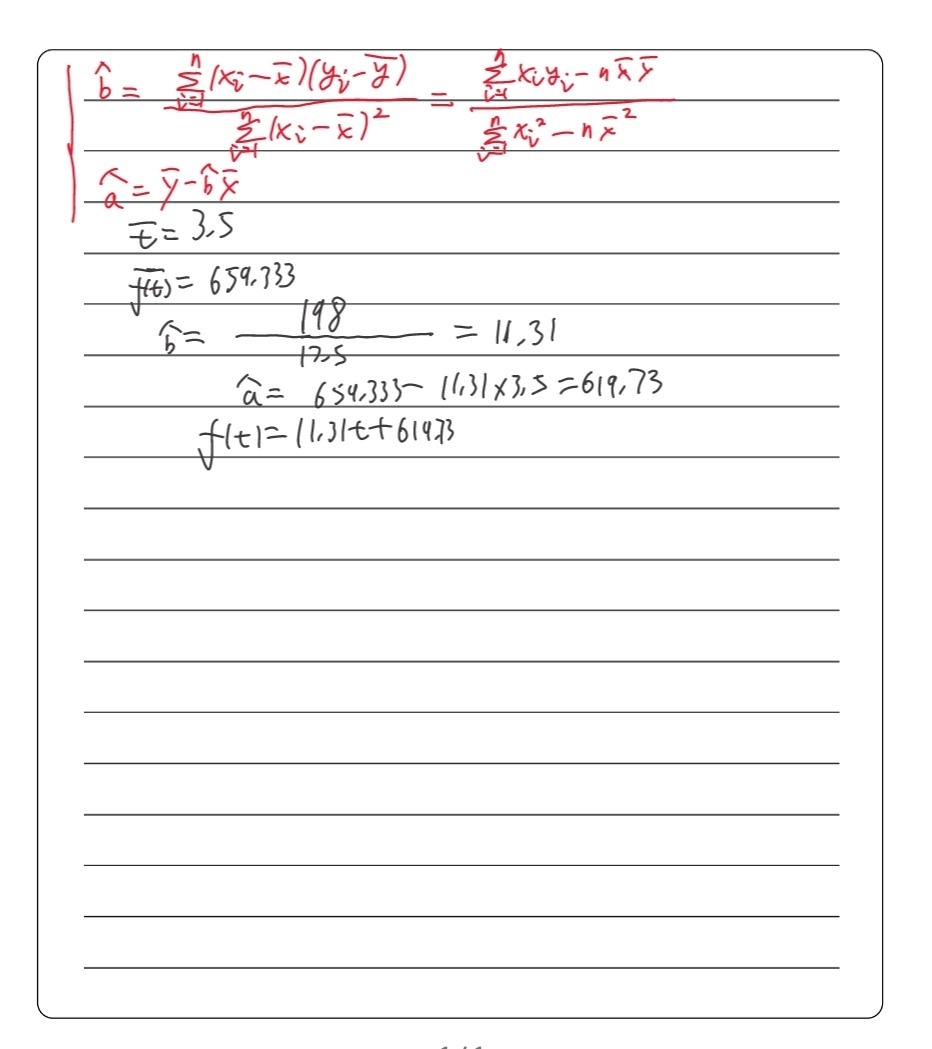 b̂ = \frac{\sum_{i=1}^{n}(x_i - x̄)(y_i - ȳ)}{\sum_{i=1}^{n}(x_i - x̄)^2} = \frac{\sum_{i=1}^{n} x_i y_i - n x̄ ȳ}{\sum_{i=1}^{n} x_i^2 - n x̄^2}
â = ȳ - b̂ x̄
t̄ = 3.5
\overline{f(t)} = 659.333
b̂ = \frac{198}{17.5} = 11.31
â = 659.333 - 11.31×3.5 = 619.73
f(t) = 11.31t + 619.73